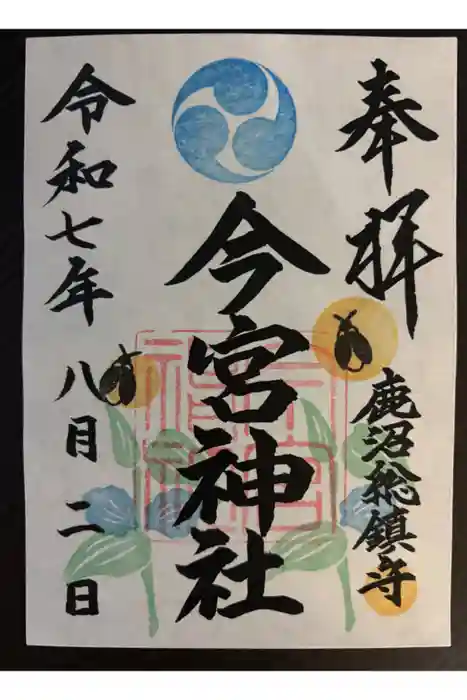 奉拝
鹿沼総鎮守
今宮神社
令和七年
八月二日